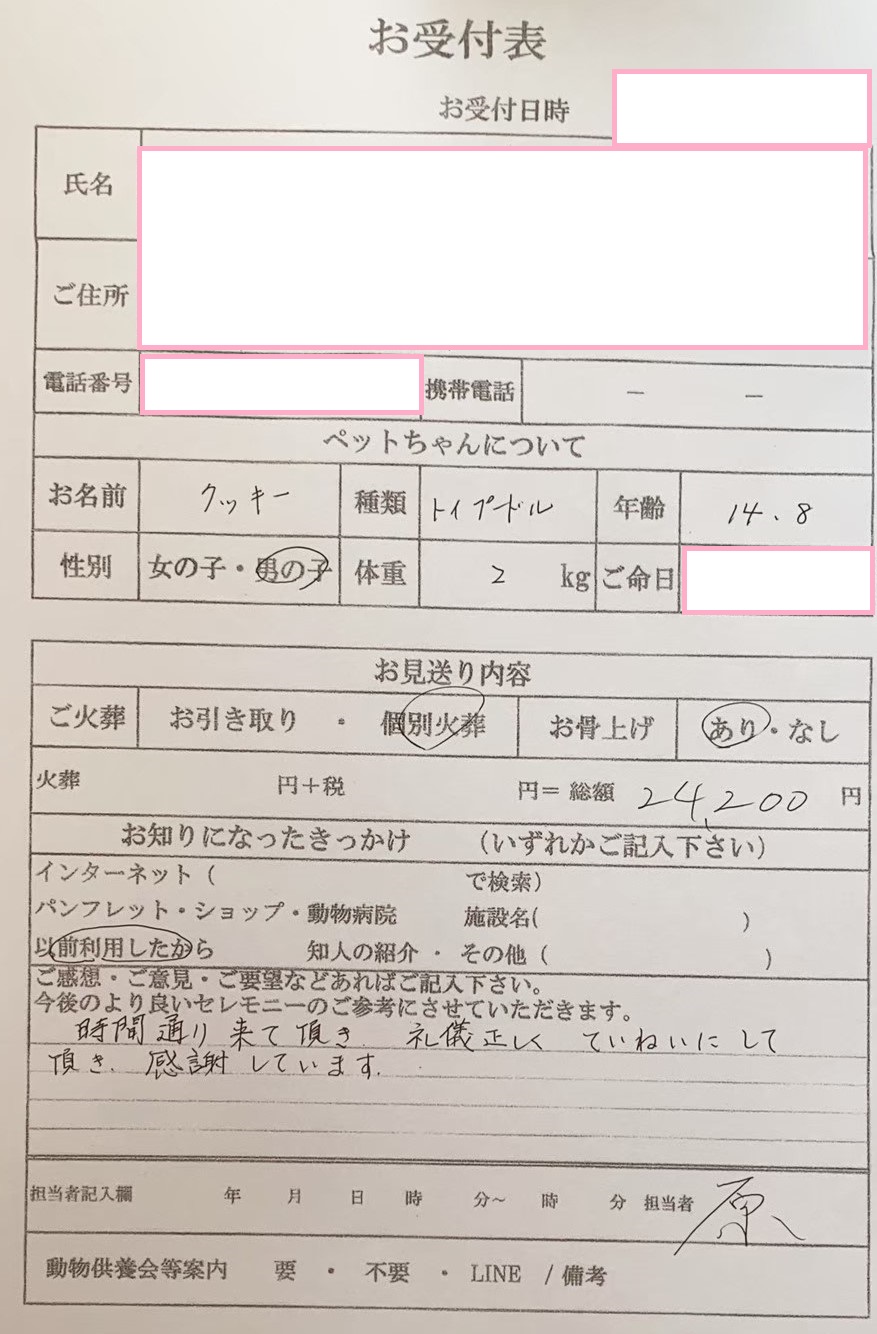 お受付表
お受付日時
氏名
ご住所
電話番号 携帯電話 － －
ペットちゃんについて
お名前 クッキー 種類 トイプードル 年齢 14.8
性別 女の子・男の子 体重 2 kg ご命日
お見送り内容
ご火葬 お引き取り ・ 個別火葬 お骨上げ あり・なし
火葬 円＋税 円＝ 総額 24,200 円
お知りになったきっかけ （いずれかご記入下さい）
インターネット（ で検索）
パンフレット・ショップ・動物病院 施設名( )
以前利用したから 知人の紹介 ・ その他（ ）
ご感想・ご意見・ご要望などあればご記入下さい。
今後のより良いセレモニーのご参考にさせていただきます。
時間通り来て頂き 礼儀正しく ていねいにして
頂き、感謝しています。
担当者記入欄 年 月 日 時 分～ 時 分 担当者 原
動物供養会等案内 要 ・ 不要 ・ LINE / 備考